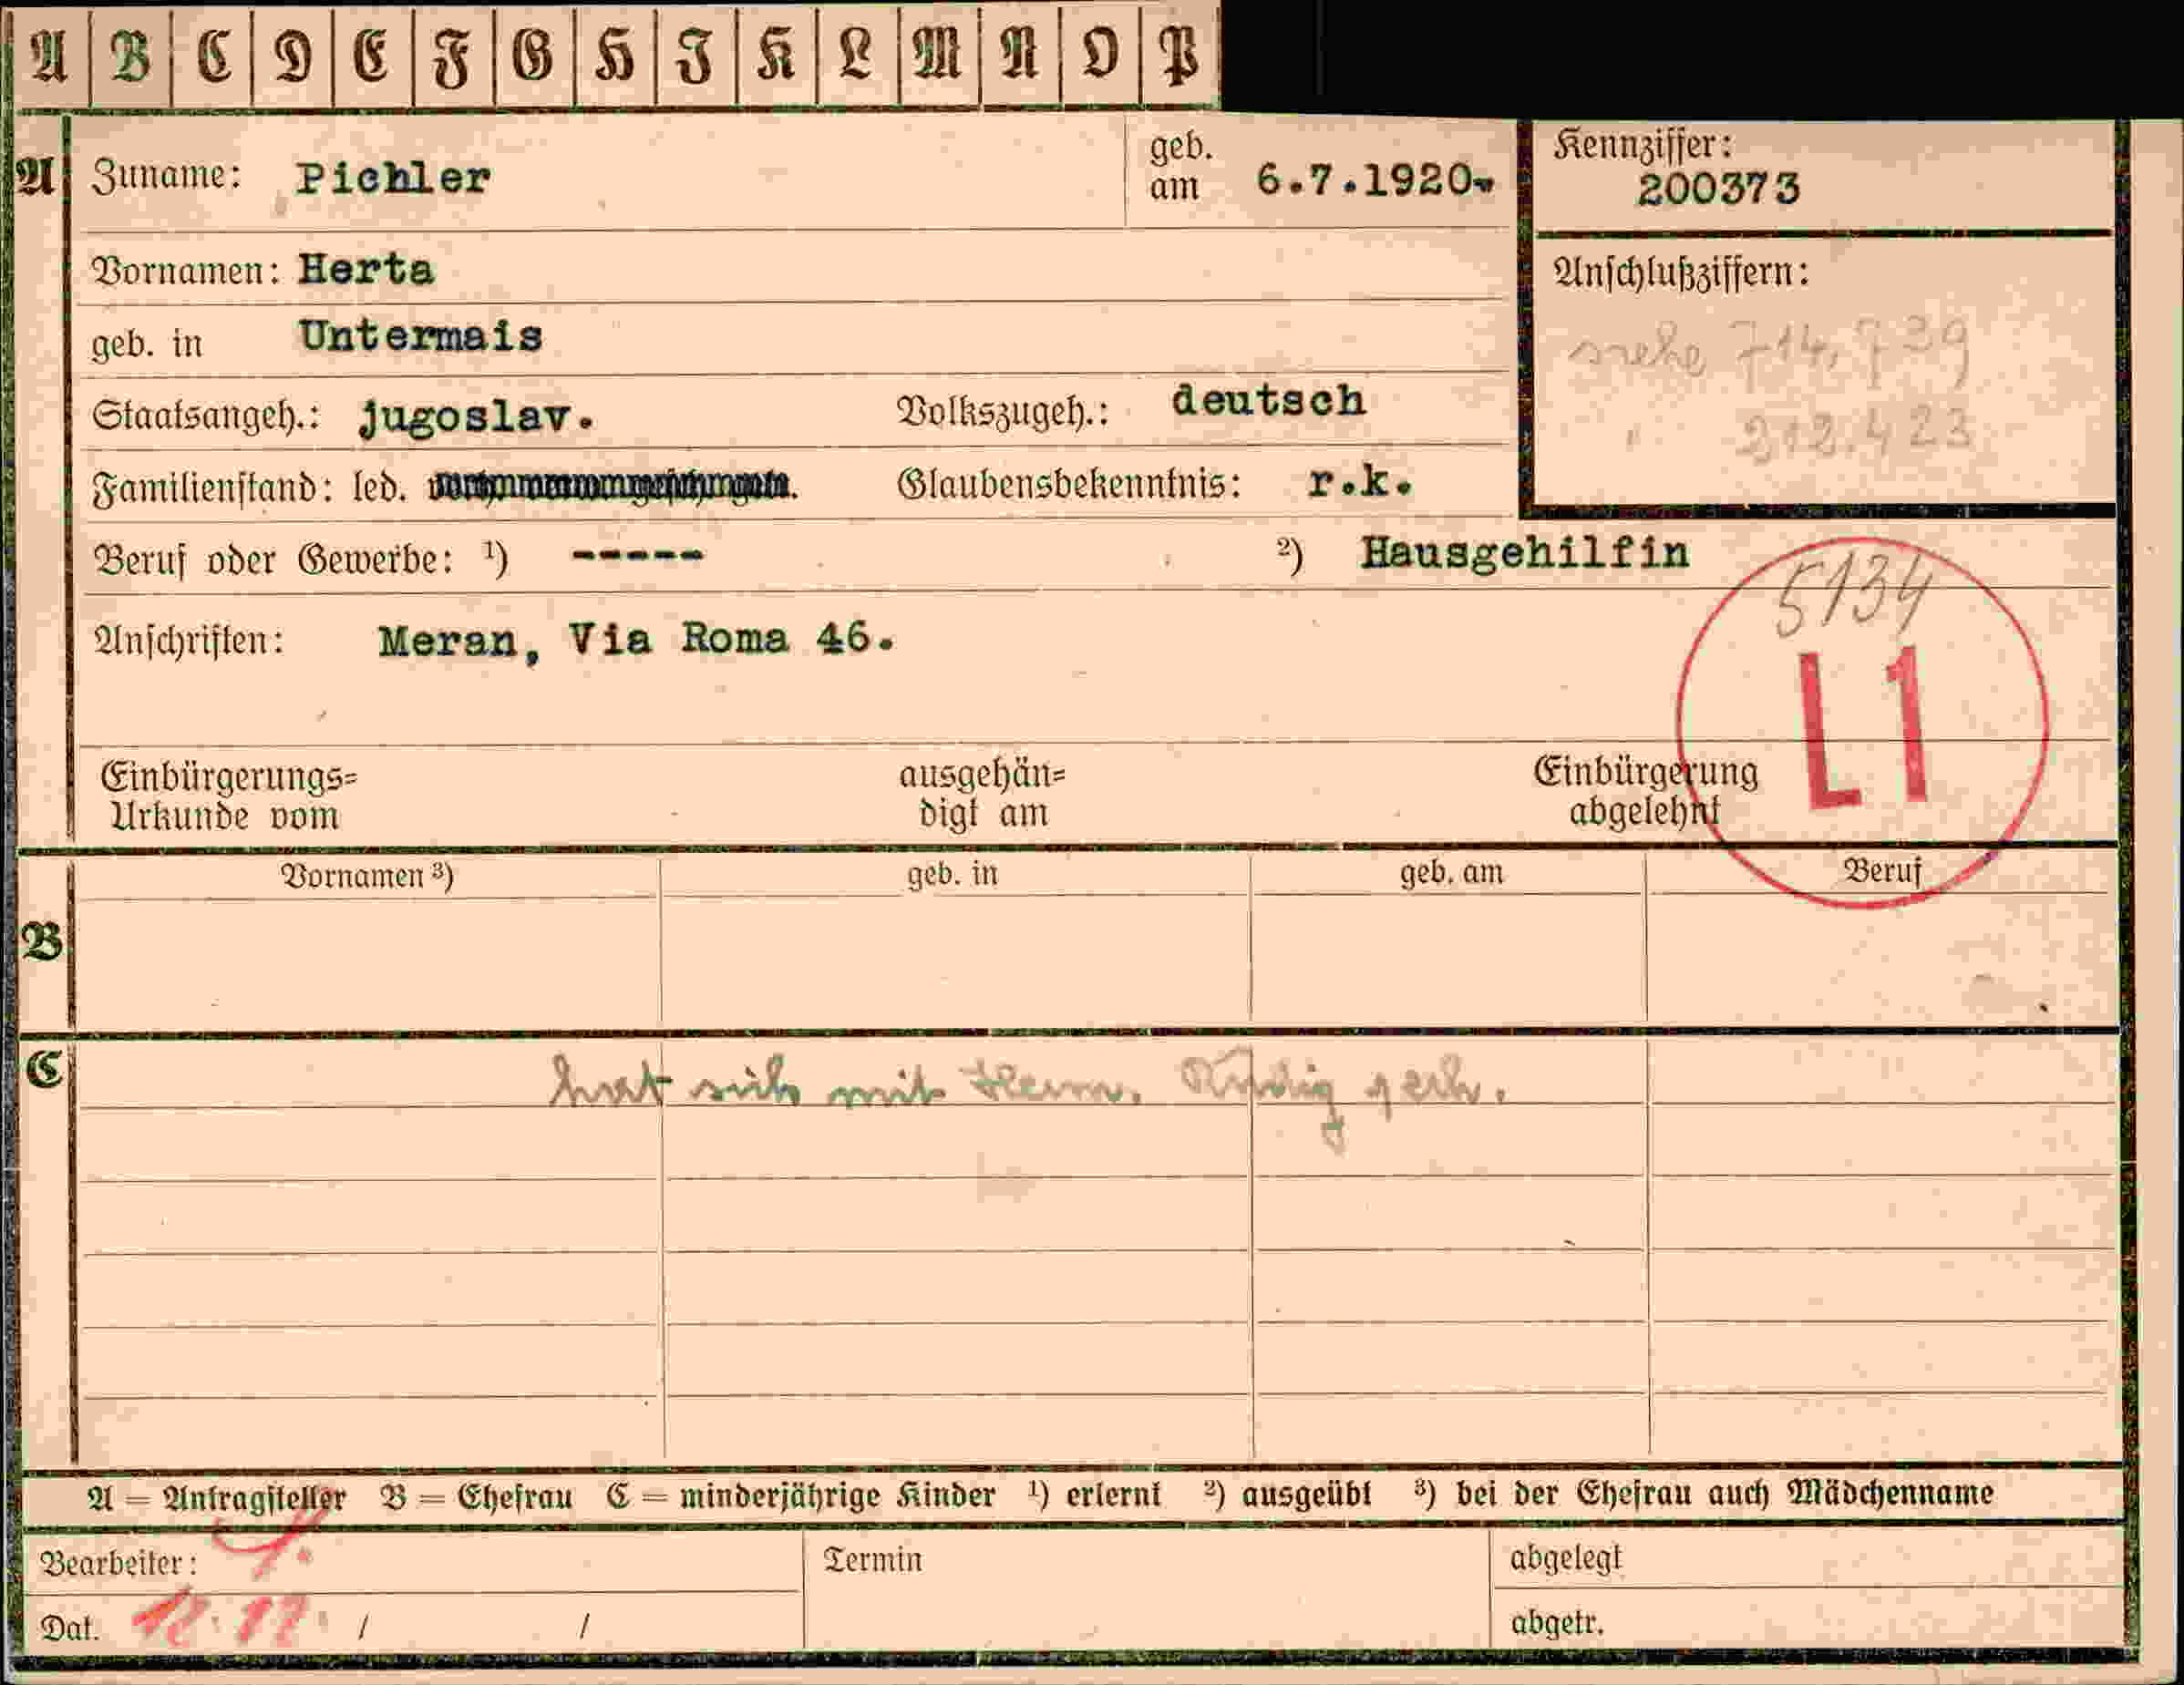 A B C D E F G H I K L M N O P
A Zuname: Pichler geb. am 6.7.1920.
Kennziffer: 200373
Vornamen: Herta
geb. in Untermais
Anschlußziffern:
siehe 714,739
" 212.423
Staatsangeh.: jugoslav. Volkszugeh.: deutsch
Familienstand: led. Glaubensbekenntnis: r.k.
Beruf oder Gewerbe: ¹) ----- ²) Hausgehilfin
5134
L1
Anschriften: Meran, Via Roma 46.
Einbürgerungs= ausgehän= Einbürgerung
Urkunde vom digt am abgelehnt
Vornamen ³) geb. in geb. am Beruf
B
C
hat sich mit Herm. geh.
A = Antragsteller B = Ehefrau C = minderjährige Kinder ¹) erlernt ²) ausgeübt ³) bei der Ehefrau auch Mädchenname
Bearbeiter: Termin abgelegt
Dat. 12.12 / / abgetr.